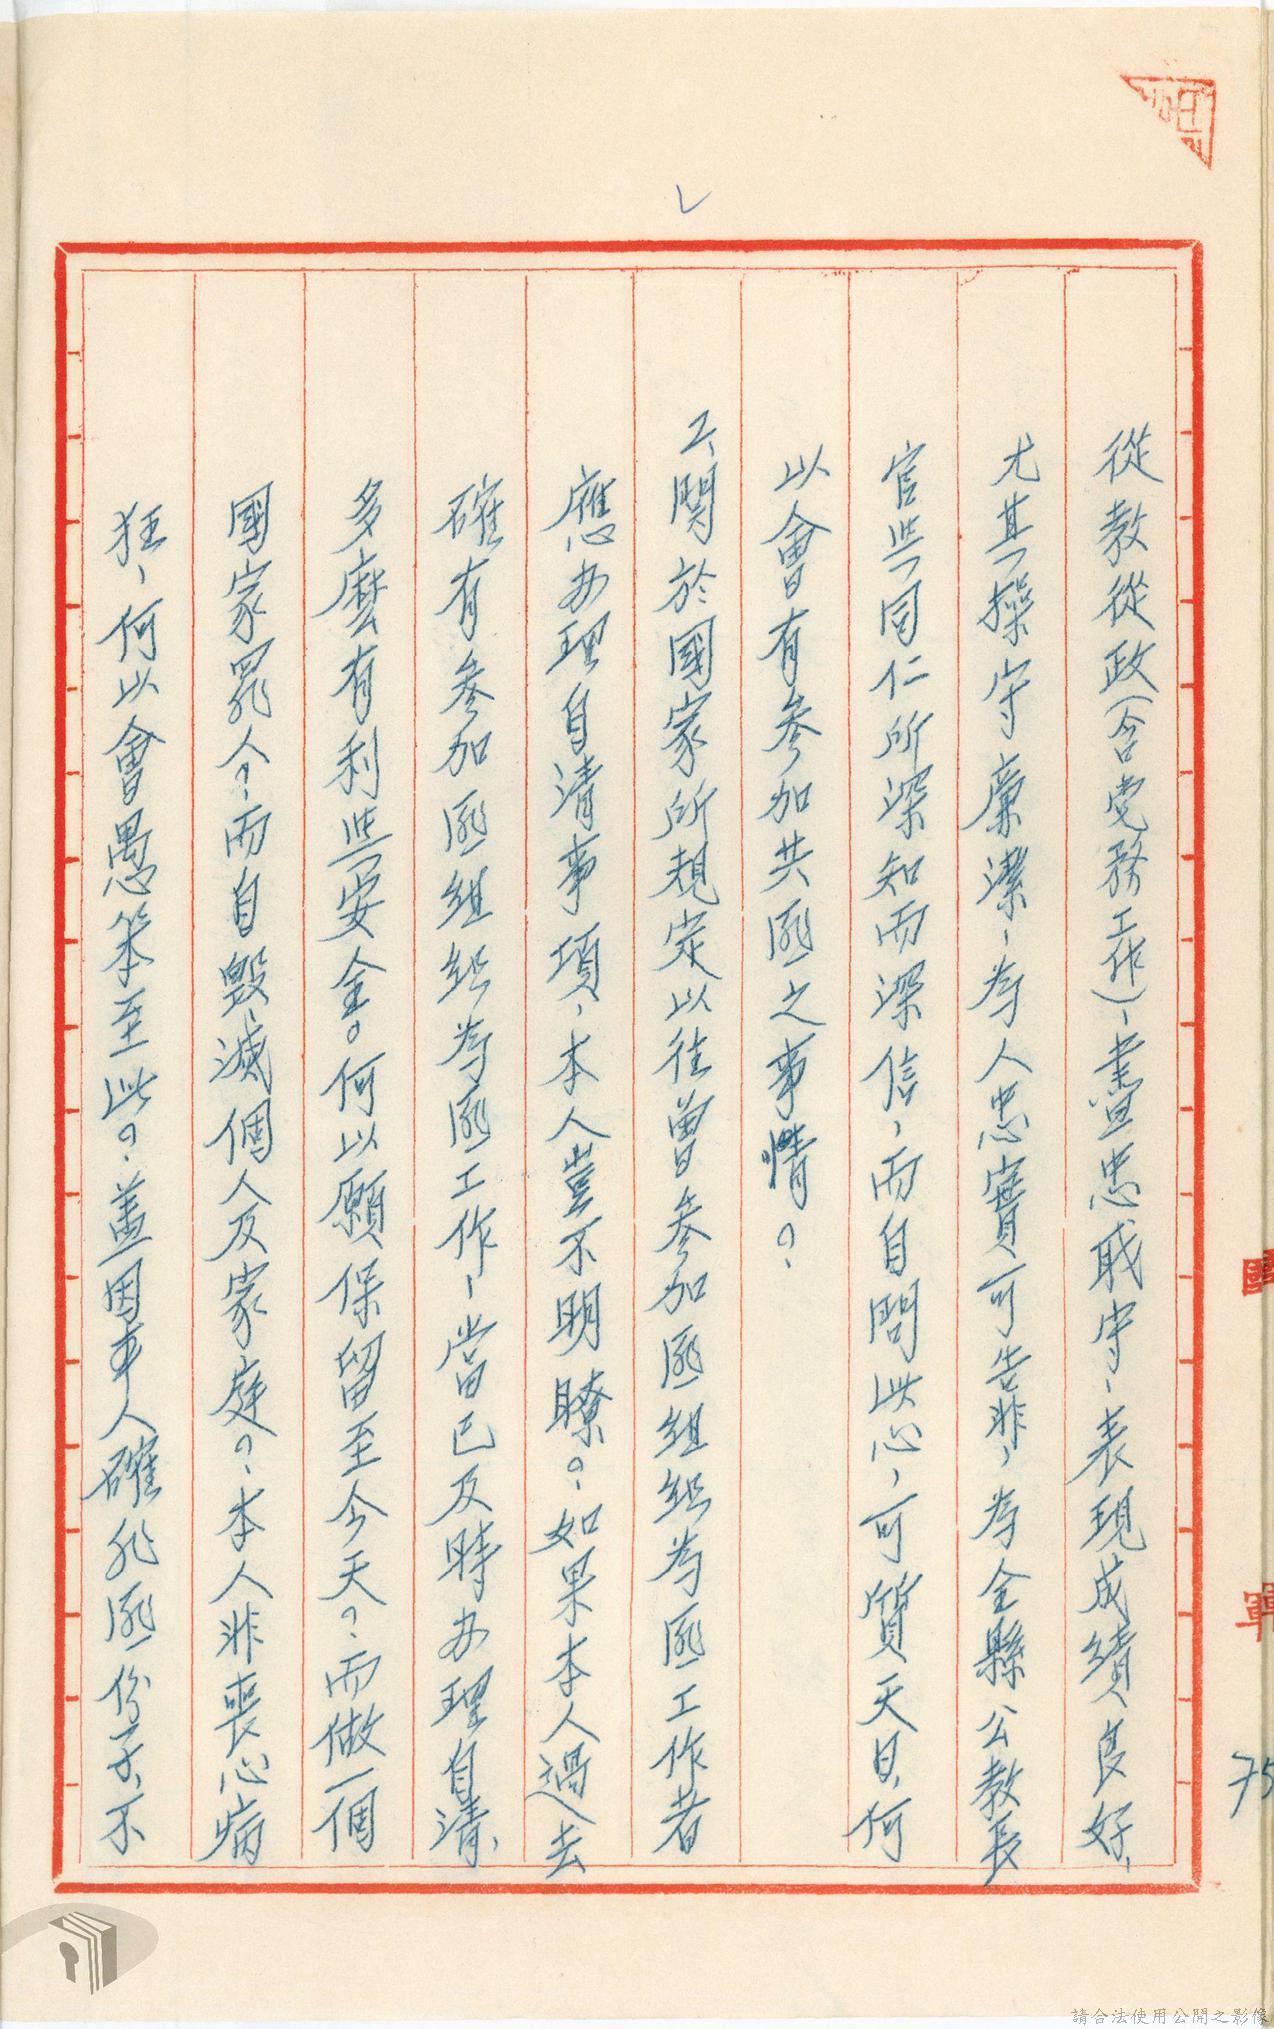 從教從政(含党務工作)、盡忠職守、表現成績良好、
尤其操守廉潔、為人忠實、可告非，為全縣公教長
官與同仁所深知而深信，而自問此心，可質天日，何
以會有參加共匪之事情？
2、關於國家所規定以往曾參加匪組織為匪工作者
應办理自清事項、本人豈不明瞭？如果本人過去
確有參加匪組織為匪工作、當已及時办理自清、
多麼有利與安全。何以願保留至今天？而做一個
國家罪人？而自毀滅個人及家庭？本人非喪心病
狂，何以會愚笨至此？盖因本人確非匪份子、不
75
國
軍
請合法使用公開之影像